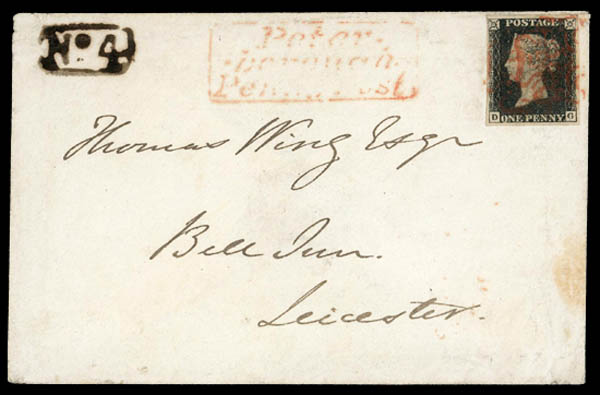 No. 4
Peter-
borough
Penny Post
POSTAGE
ONE PENNY
Thomas Wing Esqr
Bell Inn.
Leicester.